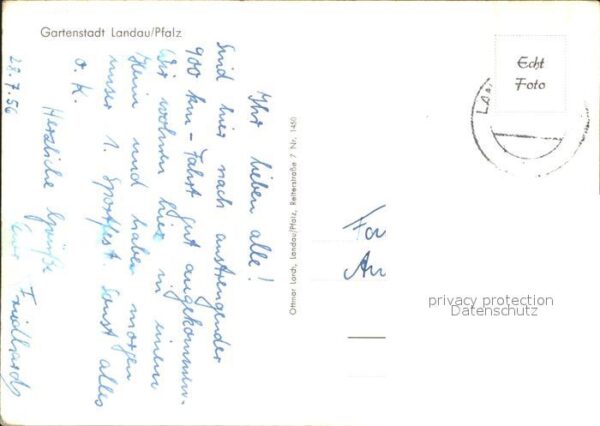 Gartenstadt Landau/Pfalz
28.7.56
Ihr lieben alle!
Sind hier nach anstrengender
900 km-Fahrt gut angekommen.
Wir wohnen hier in einem
Heim und haben morgen
unser 1. Sportfest. Sonst alles
o.K.
Herzliche Grüße
Euer Friedhardt
Ottmar Lorch, Landau/Pfalz, Reiterstraße 7 Nr. 1450
Echt
Foto
LAN
Fa
An
privacy protection
Datenschutz